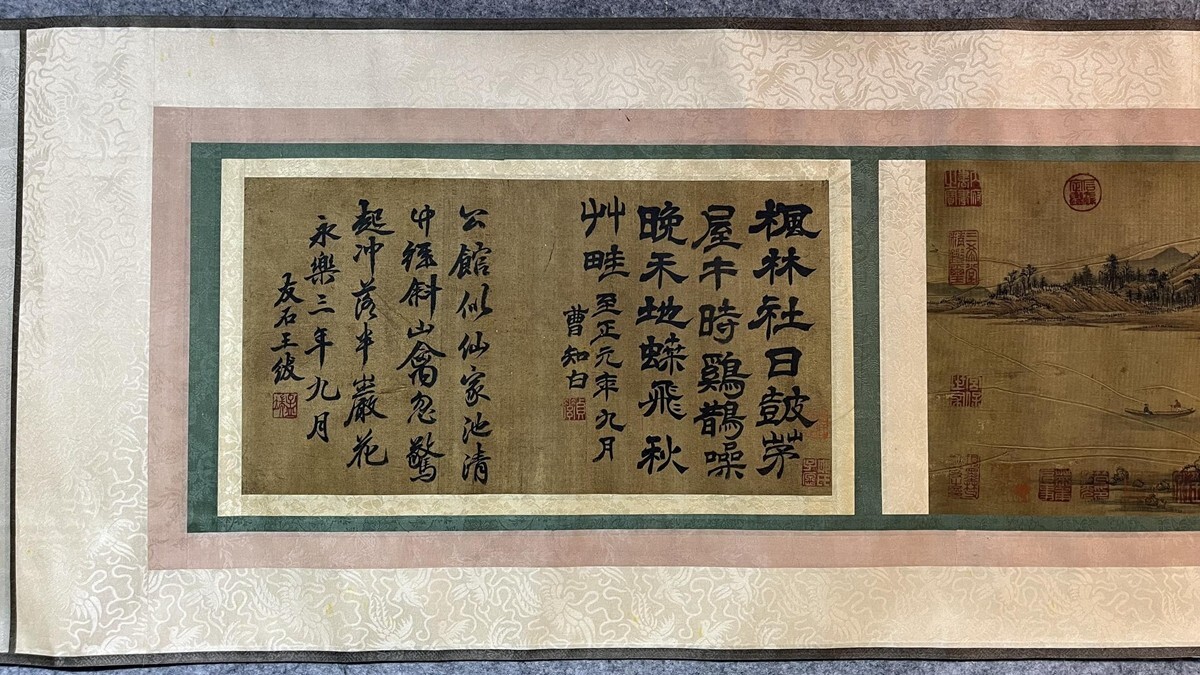 楓林社日皷茅
屋午時鷄鵲噪
晚禾地蝶飛秋
艸畦
至正元年九月
曹知白
公館似仙家池清
竹徑斜山禽忽驚
起冲落半巖花
永樂三年九月
友石王紱